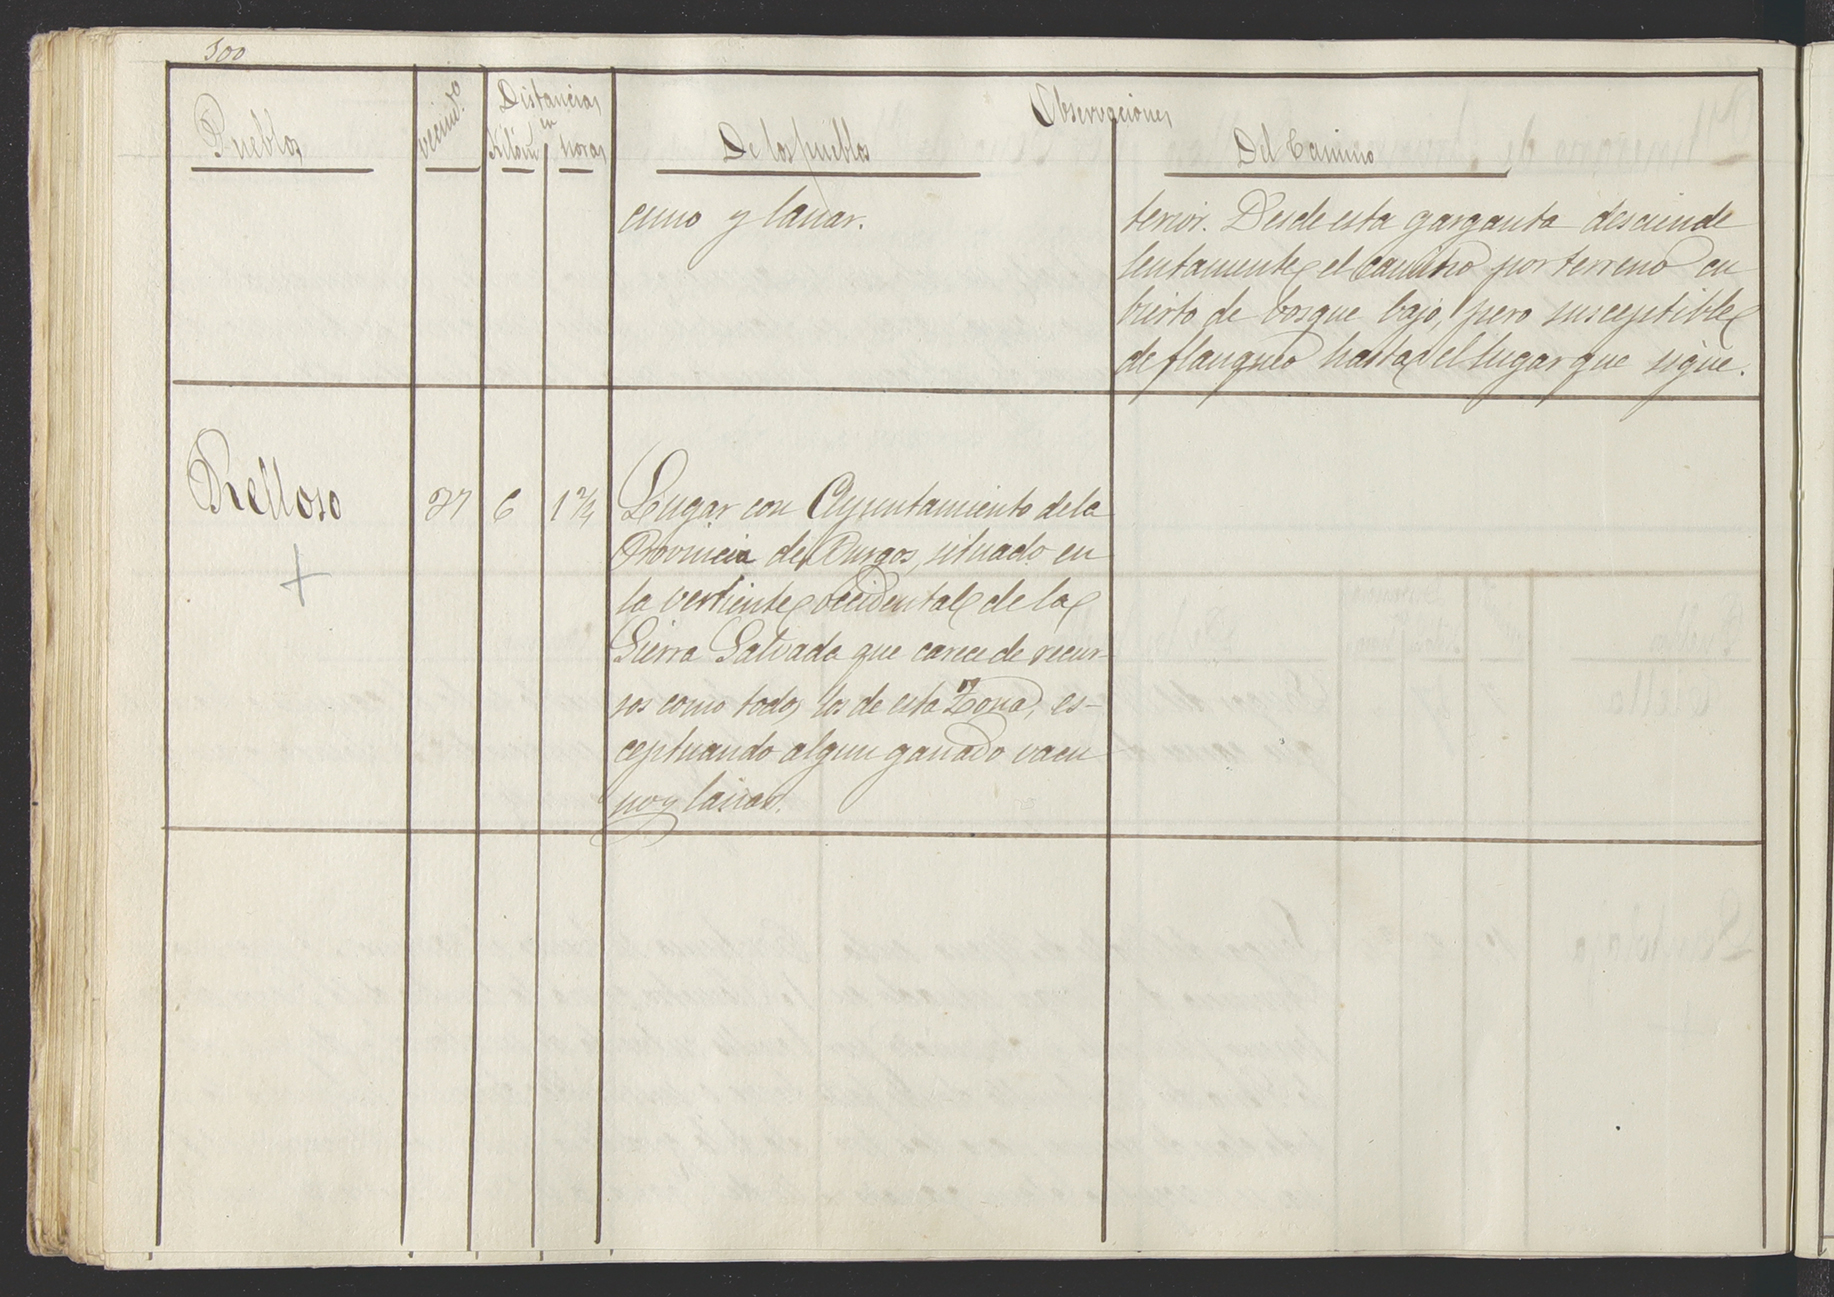 300
Pueblos
vecind.º
Distancias
en
Kilóm
horas
Observaciones
De los pueblos
Del Camino
cuno y lanar.
terior. Desde esta garganta desciende
lentamente el camino por terreno cu
bierto de bosque bajo, pero susceptible
de flanqueo hasta el lugar que sigue.
Relloso
27
6
1 2/4
Lugar con Ayuntamiento de la
Provincia de Burgos, situado en
la vertiente occidental de la
Sierra Salvada que carece de recur-
sos como todos los de esta Zona, es-
ceptuando algun ganado vacu
no y lanar.